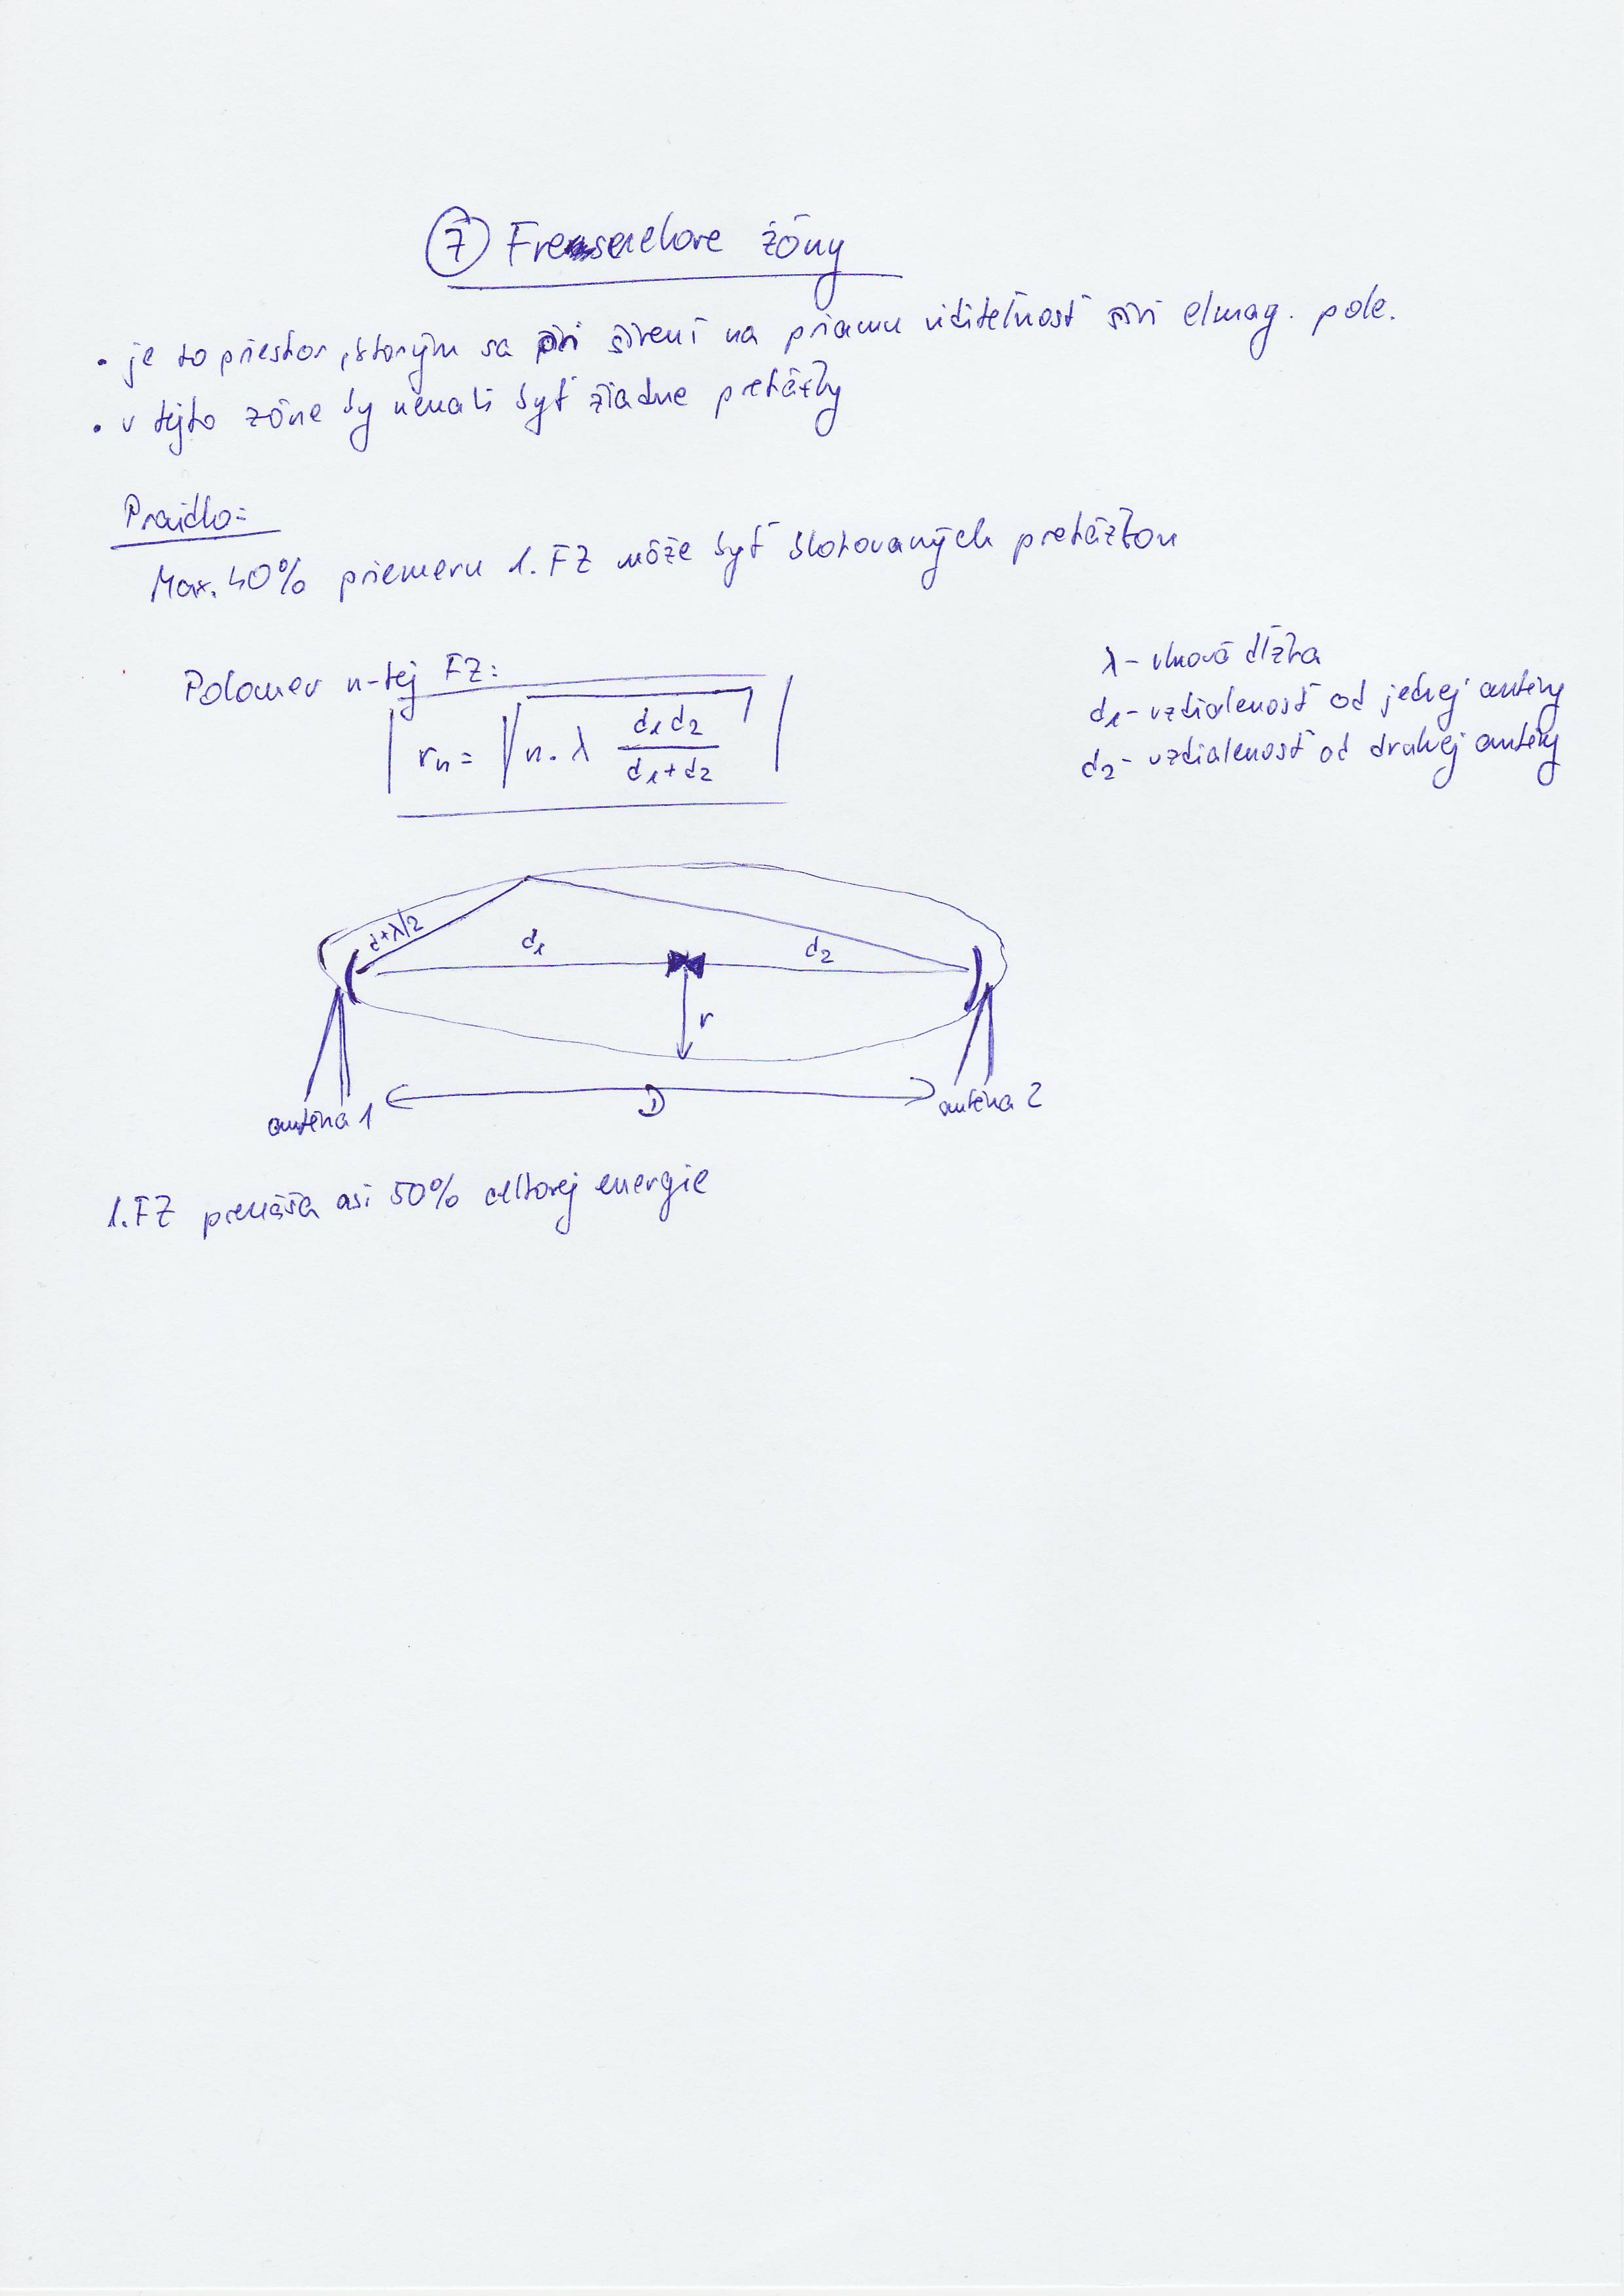 7 Fresnelove zóny
• je to priestor, ktorým sa pri šírení na priamu viditeľnosť šíri elmag. pole.
• v tejto zóne by nemali byť žiadne prekážky
Pravidlo:
Max. 40% priemeru 1. FZ môže byť blokovaných prekážkou
Polomer n-tej FZ:
rn = √ n. λ d1 d2 / d1+d2
λ - vlnová dĺžka
d1 - vzdialenosť od jednej antény
d2 - vzdialenosť od druhej antény
d+λ/2
d1
d2
r
D
anténa 1
anténa 2
1. FZ prenáša asi 50% celkovej energie